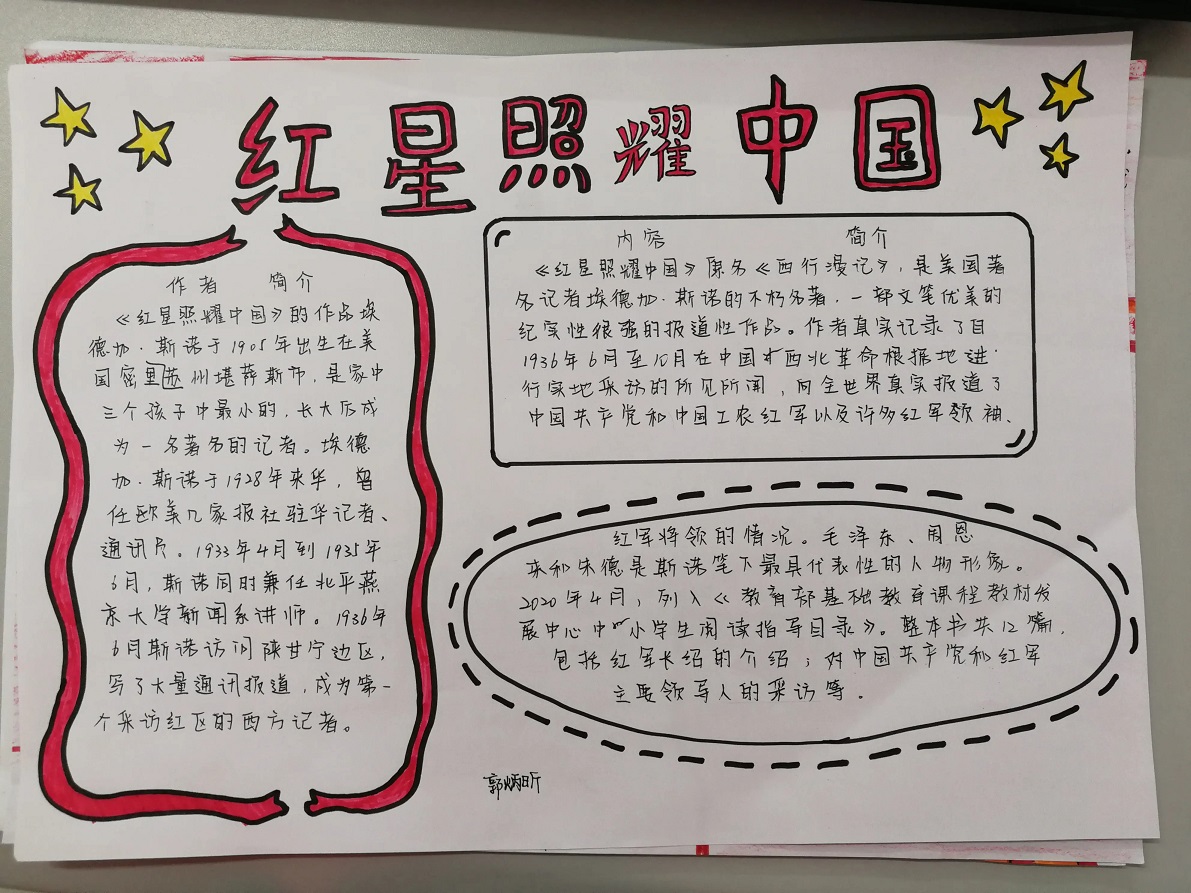 红星照耀中国
作者 简介
《红星照耀中国》的作品埃
德加·斯诺于1905年出生在美
国密里苏州堪萨斯市,是家中
三个孩子中最小的,长大后成
为一名著名的记者。埃德
加·斯诺于1928年来华,曾
任欧美几家报社驻华记者、
通讯员。1933年4月到1935年
6月,斯诺同时兼任北平燕
京大学新闻系讲师。1936年
6月斯诺访问陕甘宁边区,
写了大量通讯报道,成为第一
个采访红区的西方记者。
内容 简介
《红星照耀中国》原名《西行漫记》,是美国著
名记者埃德加·斯诺的不朽名著,一部文笔优美的
纪实性很强的报道性作品。作者真实记录了自
1936年6月至10月在中国西北革命根据地进
行实地采访的所见所闻,向全世界真实报道了
中国共产党和中国工农红军以及许多红军领袖、
红军将领的情况。毛泽东、周恩
来和朱德是斯诺笔下最具代表性的人物形象。
2020年4月,列入《教育部基础教育课程教材发
展中心中小学生阅读指导目录》。整本书共12篇,
包括红军长绍的介绍;对中国共产党和红军
主要领导人的采访等.
郭炳昕